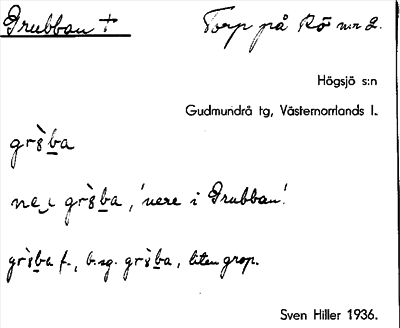 Grubban + Torp på Rö nr 2.
Högsjö s:n
Gudmundrå tg, Västernorrlands l.
grs̀ba
ne ι grs̀ba, 'nere i Grubban'.
grs̀ba f., b.sg. grs̀ba, liten grop.
Sven Hiller 1936.